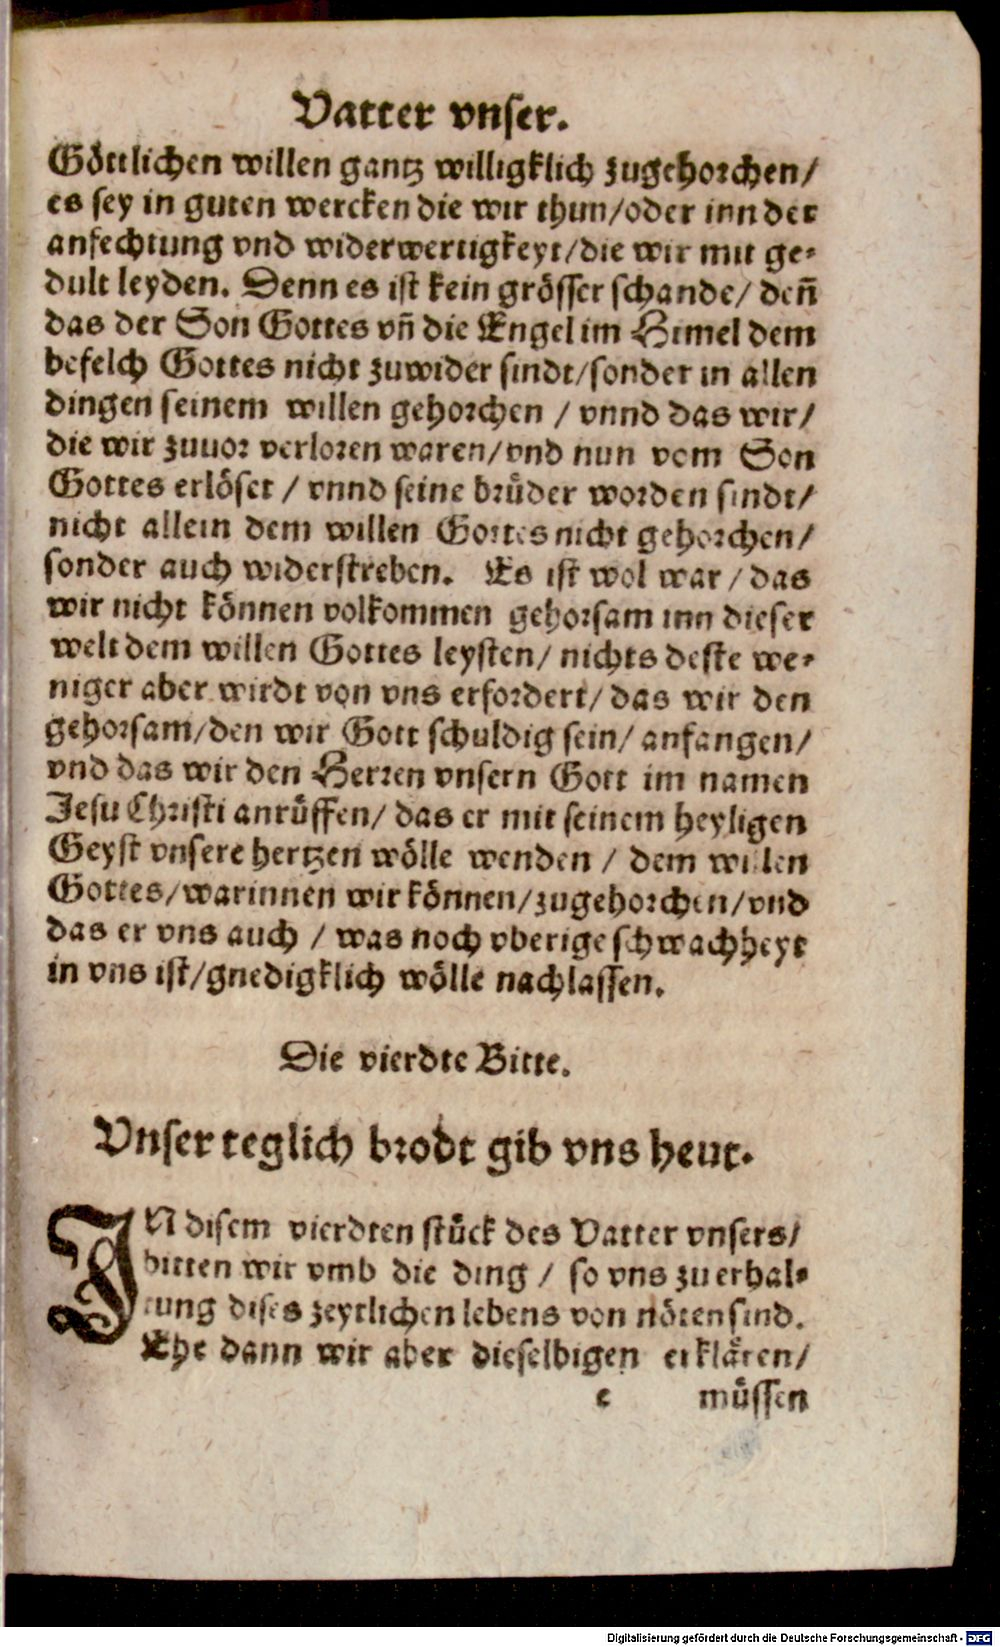 Vatter vnser.
Göttlichen willen gantz willigklich zugehorchen/
es sey in guten wercken die wir thun/oder inn der
anfechtung vnd widerwertigkeyt/die wir mit ge-
dult leyden. Denn es ist kein grösser schande/ den̄
das der Son Gottes vn̄ die Engel im Himel dem
befelch Gottes nicht zuwider sindt/sonder in allen
dingen seinem willen gehorchen / vnnd das wir/
die wir zuuor verloren waren/vnd nun vom Son
Gottes erlöset / vnnd seine brüder worden sindt/
nicht allein dem willen Gottes nicht gehorchen/
sonder auch widerstreben. Es ist wol war / das
wir nicht können volkommen gehorsam inn dieser
welt dem willen Gottes leysten/ nichts deste we-
niger aber wirdt von vns erfordert/ das wir den
gehorsam/den wir Gott schuldig sein/ anfangen/
vnd das wir den Herren vnsern Gott im namen
Jesu Christi anrüffen/ das er mit seinem heyligen
Geyst vnsere hertzen wölle wenden / dem willen
Gottes/warinnen wir können/zugehorchen/vnd
das er vns auch / was noch vberige schwachheyt
in vns ist/gnedigklich wölle nachlassen.
Die vierdte Bitte.
Vnser teglich brodt gib vns heut.
IN disem vierdten stück des Vatter vnsers/
bitten wir vmb die ding / so vns zu erhal-
tung dises zeytlichen lebens von nöten sind.
Ehe dann wir aber dieselbigen erklären/
e müssen
Digitalisierung gefördert durch die Deutsche Forschungsgemeinschaft - DFG